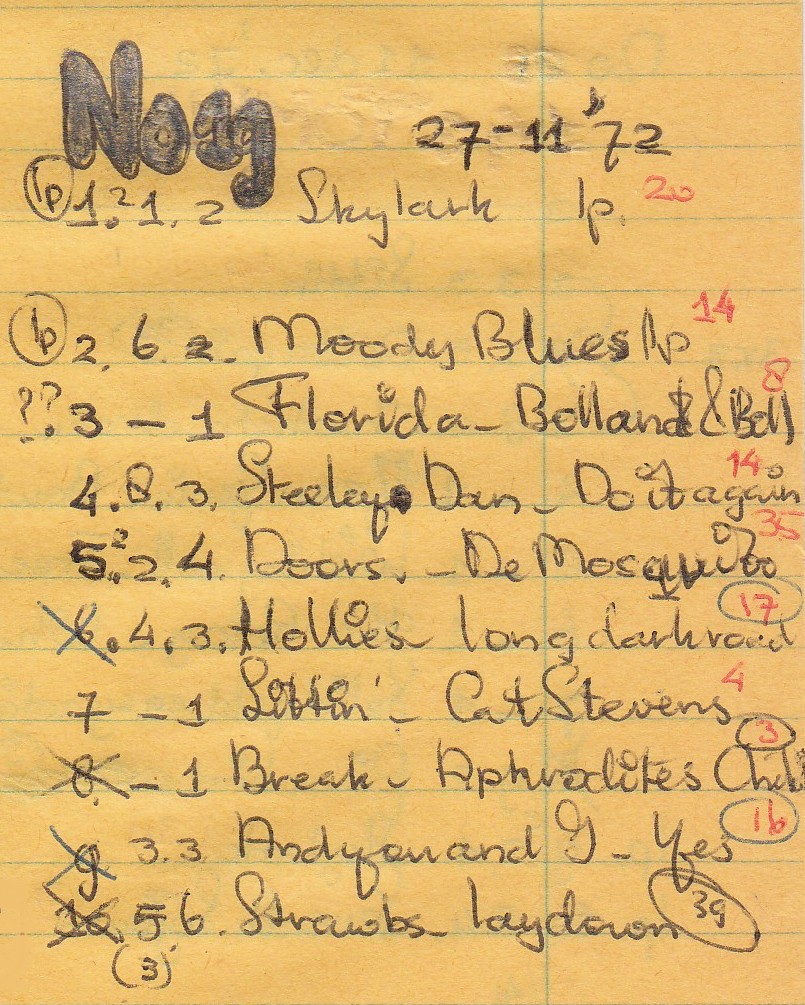 Nogg 27-11 '72
lp 1.² 1. 2 Skylark lp. 20
lp 2. 6. 2. Moody Blues lp 14
?? 3 - 1 Florida - Bolland & Boll 8
4. 8. 3. Steeleye Dan - Do it again 14
5.² 2. 4. Doors. - De Mosquito 35
6. 4. 3. Hollies - long dark road 17
7 - 1 Sittin' - Cat Stevens 4
8. - 1 Break - Aphrodites Child 3
9 3. 3. And you and I - Yes 16
10. 5. 6. Strawbs - lay down 39
(3)